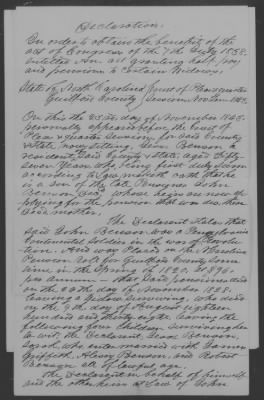 Declaration.
In order to obtain the benefits of the
act of Congress of the 7th July 1838.
entitled An act granting half pay
and pensions to certain Widows.
State of North Carolina Court of Pleas & quarter
Guilford County Session Nov Term 1845.
On this the day of November 1845
personally appeared before the Court of
Pleas & quarter Sessions for said County
& State now sitting, Levi Benson a
resident of said County & State, aged Fifty
Seven Years who being first duly sworn
according to law maketh oath that he
is a son of the late Pensioner John
Benson Decd whose heirs are now ap-
plying for the pension that was due their
Decd mother.
The Declarant states that
said John Benson was a Pennsylvania
Continental soldier in the war of Revolu-
tion. And was placed on the
Pension Role for Guilford County some
time in the Spring of 1820, at $96-
per annum. That said pensioner died
on the day of November 1823.
leaving a widow surviving, who died
on the 8th day of August eighteen
hundred and forty eight, leaving the
following four children surviving her
to wit, the Declarant, Levi Benson,
Sarah, who intermarried with
Griffith, Benson, and Robert
Benson all of lawful age.
The Declarant in behalf of himself
and the other heirs at Law of John